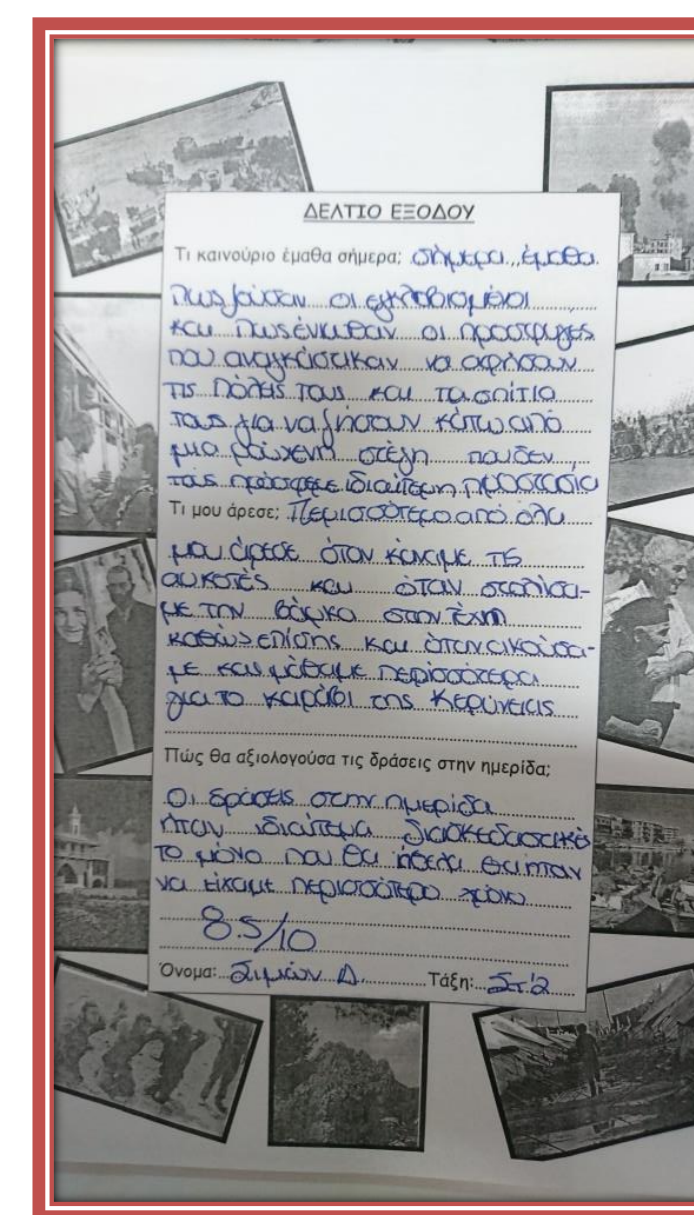 ΔΕΛΤΙΟ ΕΞΟΔΟΥ
Τι καινούριο έμαθα σήμερα; σήμερα έμαθα
πως ζούσαν οι εγκλωβισμένοι
και πως ένιωθαν οι πρόσφυγες
που αναγκάστικαν να αφήσουν
τις πόλεις τους και τα σπίτια
τους για να ζήσουν κάτω από
μια στέγη που δεν
τους πρόσφερε ιδιαίτερη προστασία
Τι μου άρεσε; Περισσότερο από όλα
μου άρεσε όταν κάναμε τις
και όταν στολίσα-
με την βάρκα στην τέχνη
καθώς επίσης και όταν ακούσα-
με και μάθαμε περισσότερα
για το καράβι της Κερύνειας
Πώς θα αξιολογούσα τις δράσεις στην ημερίδα;
Οι δράσεις στην ημερίδα
ήταν ιδιαίτερα διασκεδαστικές
το μόνο που θα ήθελα θα ήταν
να είχαμε περισσότερο χρόνο
8.5/10
Όνομα: Συμεών Δ. Τάξη: Στ'2